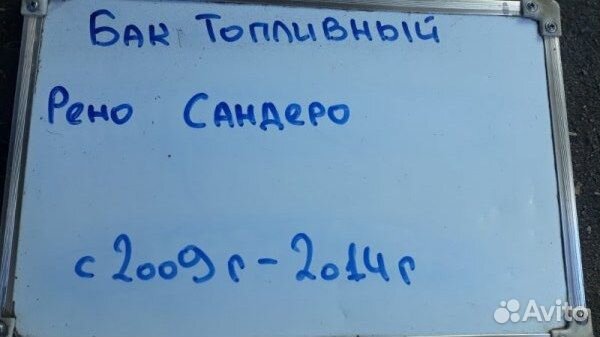 Бак топливный
Рено Сандеро
с 2009г - 2014г
Avito